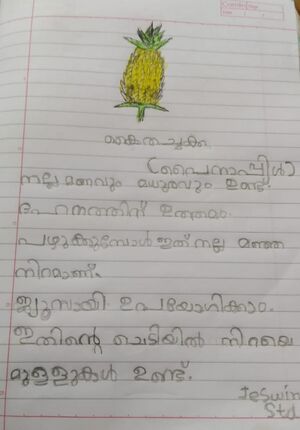 കൈതച്ചക്ക
(പൈനാപ്പിൾ)
നല്ല മണവും മധുരവും ഉണ്ട്.
ദഹനത്തിന് ഉത്തമം.
പഴുക്കുമ്പോൾ ഇത് നല്ല മഞ്ഞ
നിറമാണ്.
ജ്യൂസായി ഉപയോഗിക്കാം.
ഇതിന്റെ ചെടിയിൽ നിറയെ
മുള്ളുകൾ ഉണ്ട്.
Jeswin
Std